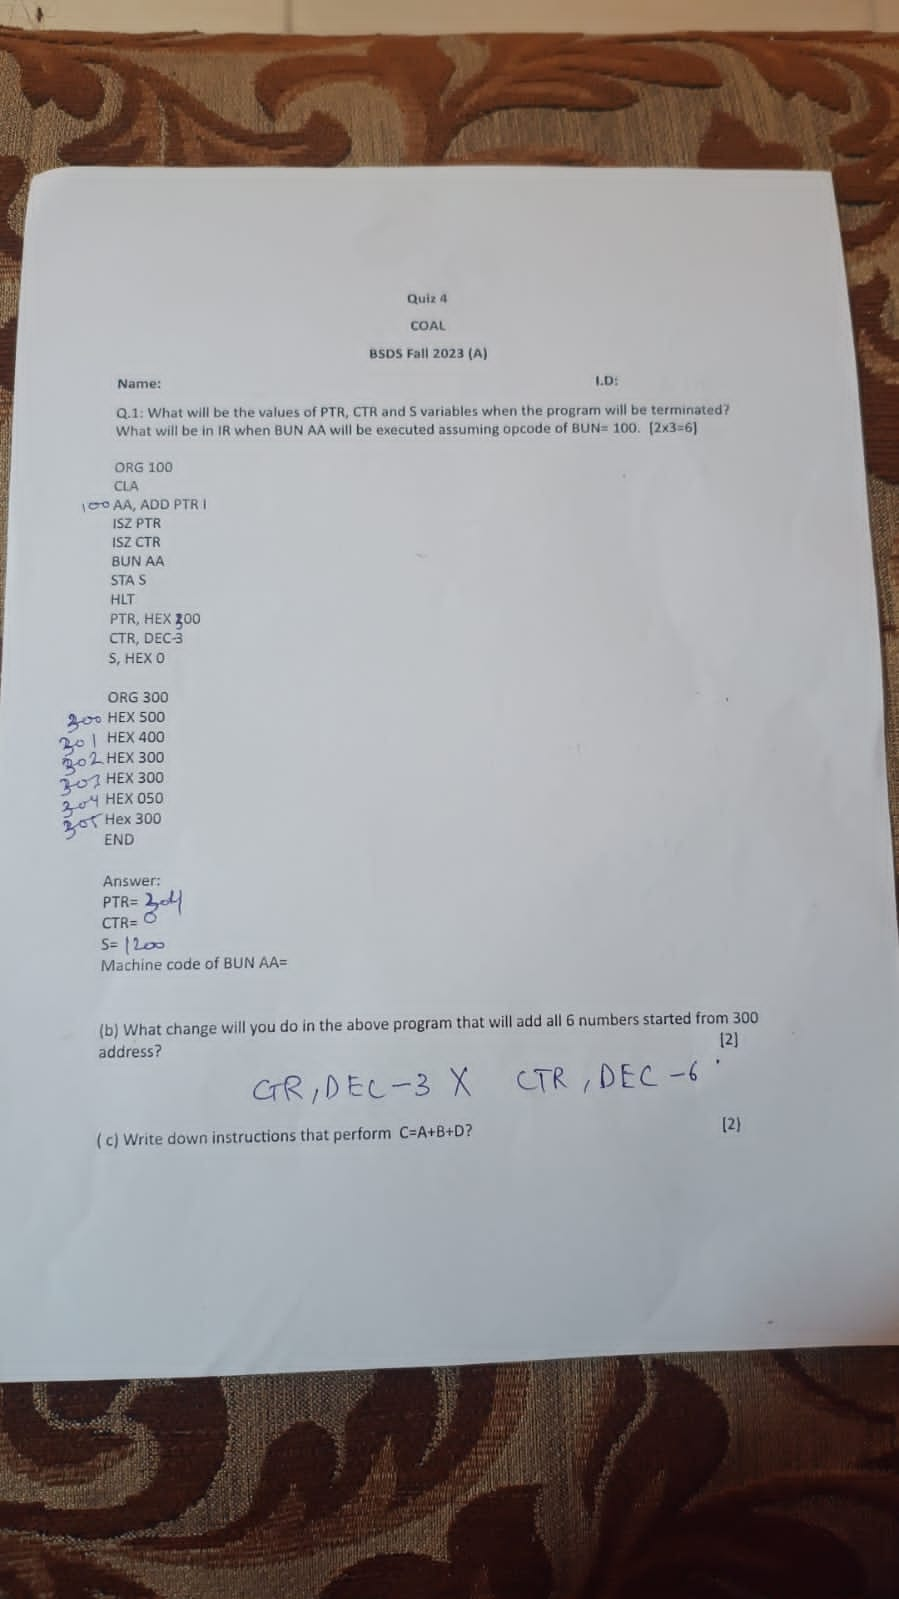 Quiz 4
COAL
BSDS Fall 2023 (A)
Name: I.D:
Q.1: What will be the values of PTR, CTR and S variables when the program will be terminated?
What will be in IR when BUN AA will be executed assuming opcode of BUN= 100. [2x3=6]
ORG 100
CLA
100 AA, ADD PTR I
ISZ PTR
ISZ CTR
BUN AA
STA S
HLT
PTR, HEX 300
CTR, DEC-3
S, HEX 0
ORG 300
300 HEX 500
301 HEX 400
302 HEX 300
303 HEX 300
304 HEX 050
305 Hex 300
END
Answer:
PTR= 304
CTR= 0
S= 1200
Machine code of BUN AA=
(b) What change will you do in the above program that will add all 6 numbers started from 300
address? [2]
CTR, DEC-3 X CTR, DEC -6
(c) Write down instructions that perform C=A+B+D? [2]